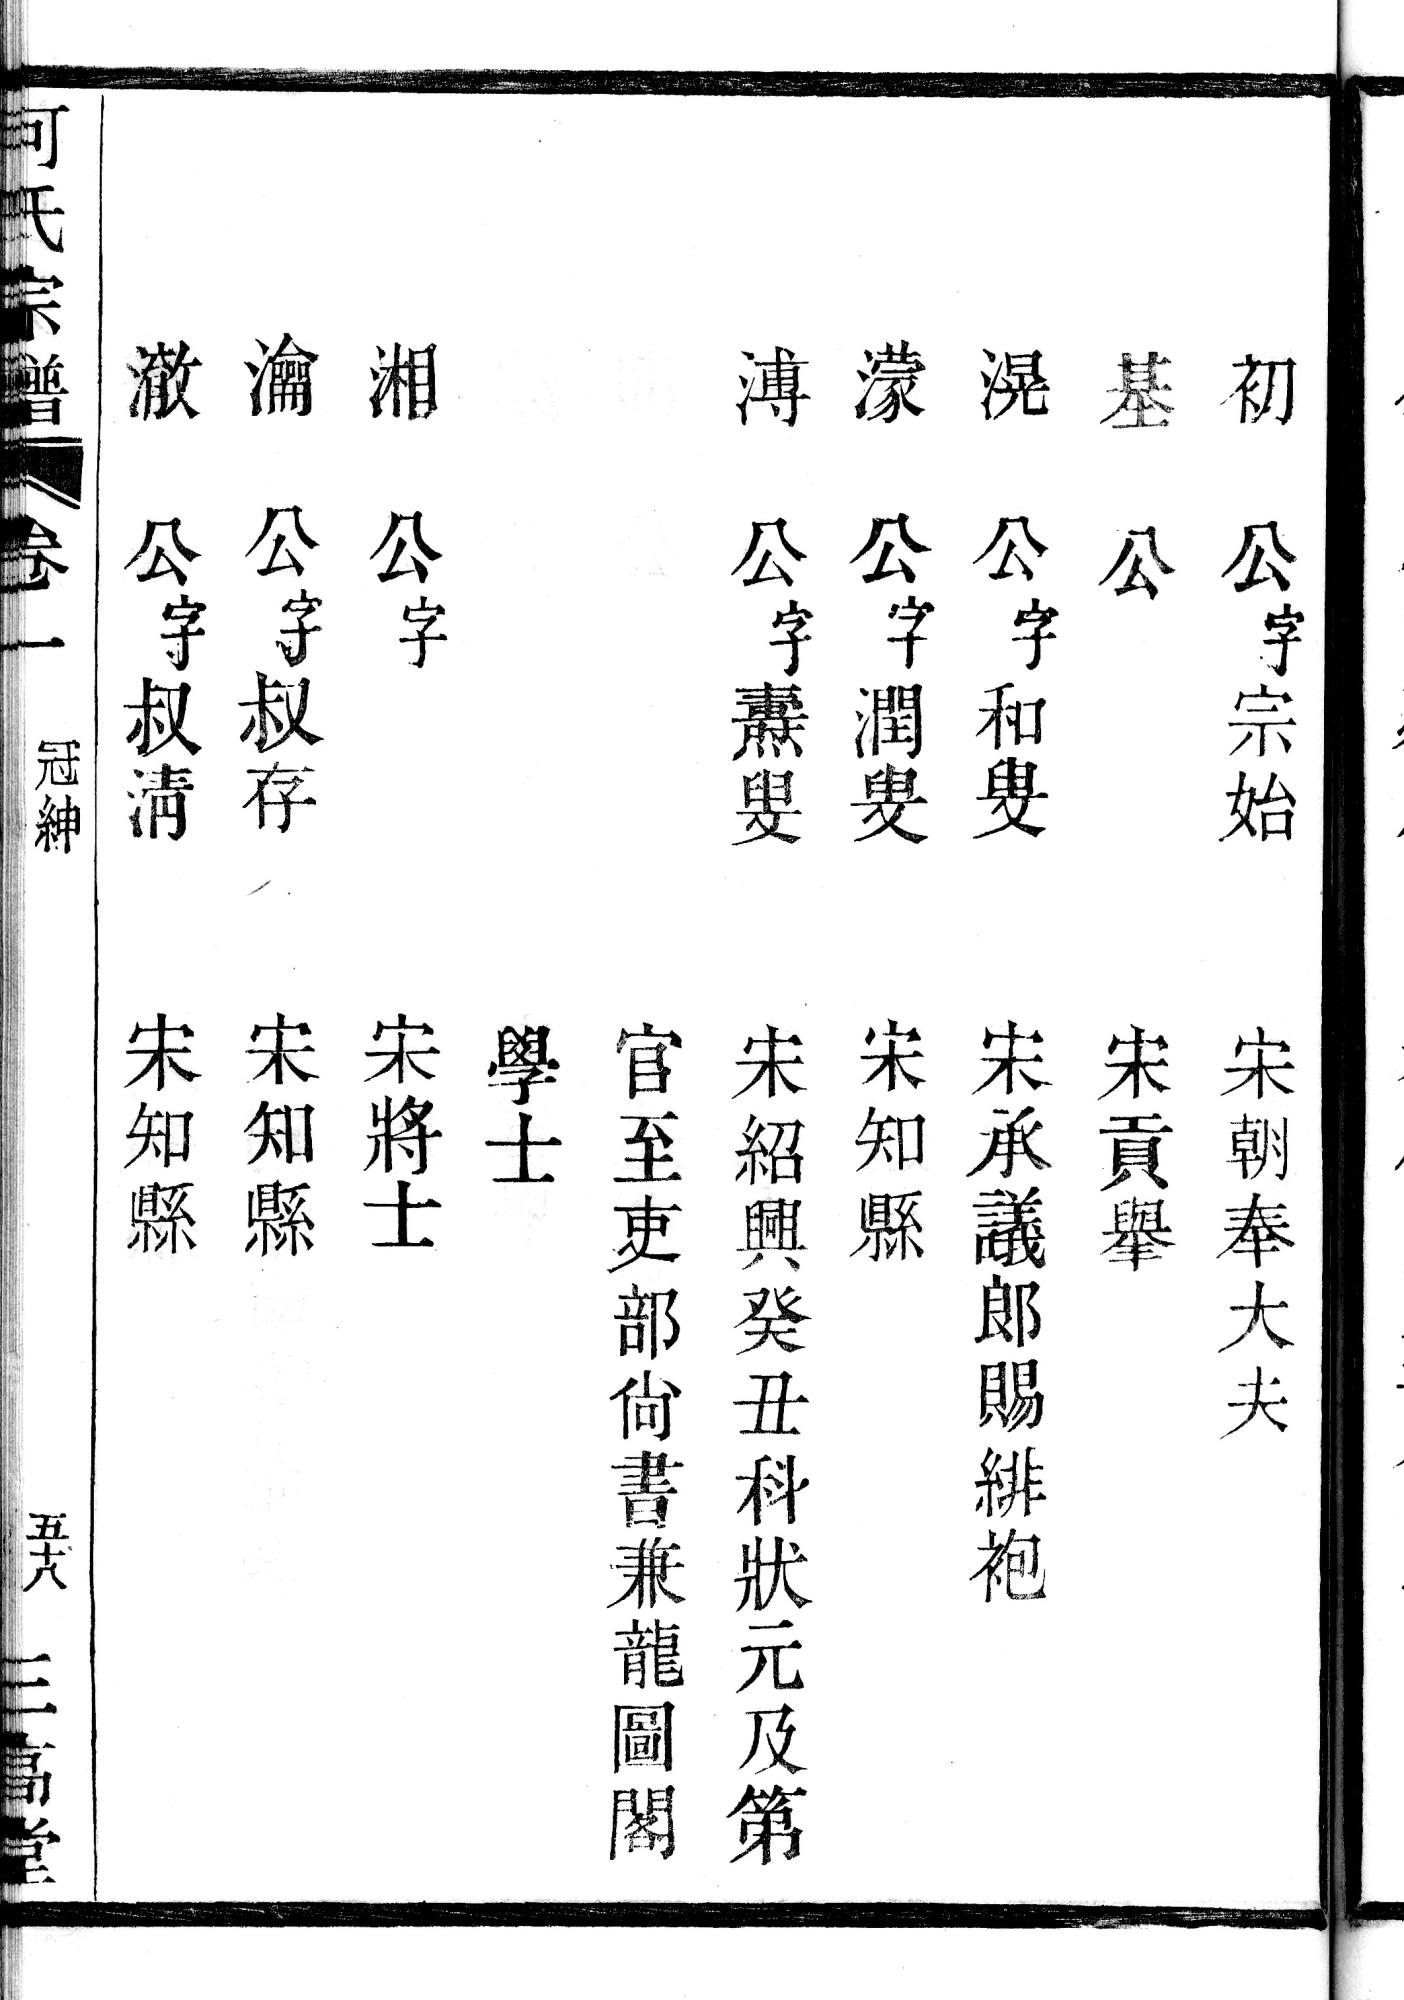 初公字宗始 宋朝奉大夫
基公 宋貢舉
滉公字和叟 宋承議郎賜緋袍
濛公字潤叟 宋知縣
溥公字燾叟 宋紹興癸丑科狀元及第
官至吏部尙書兼龍圖閣
學士
湘公字 宋將士
瀹公字叔存 宋知縣
澈公字叔清 宋知縣
何氏宗譜 卷一 冠紳 五十八 三高堂